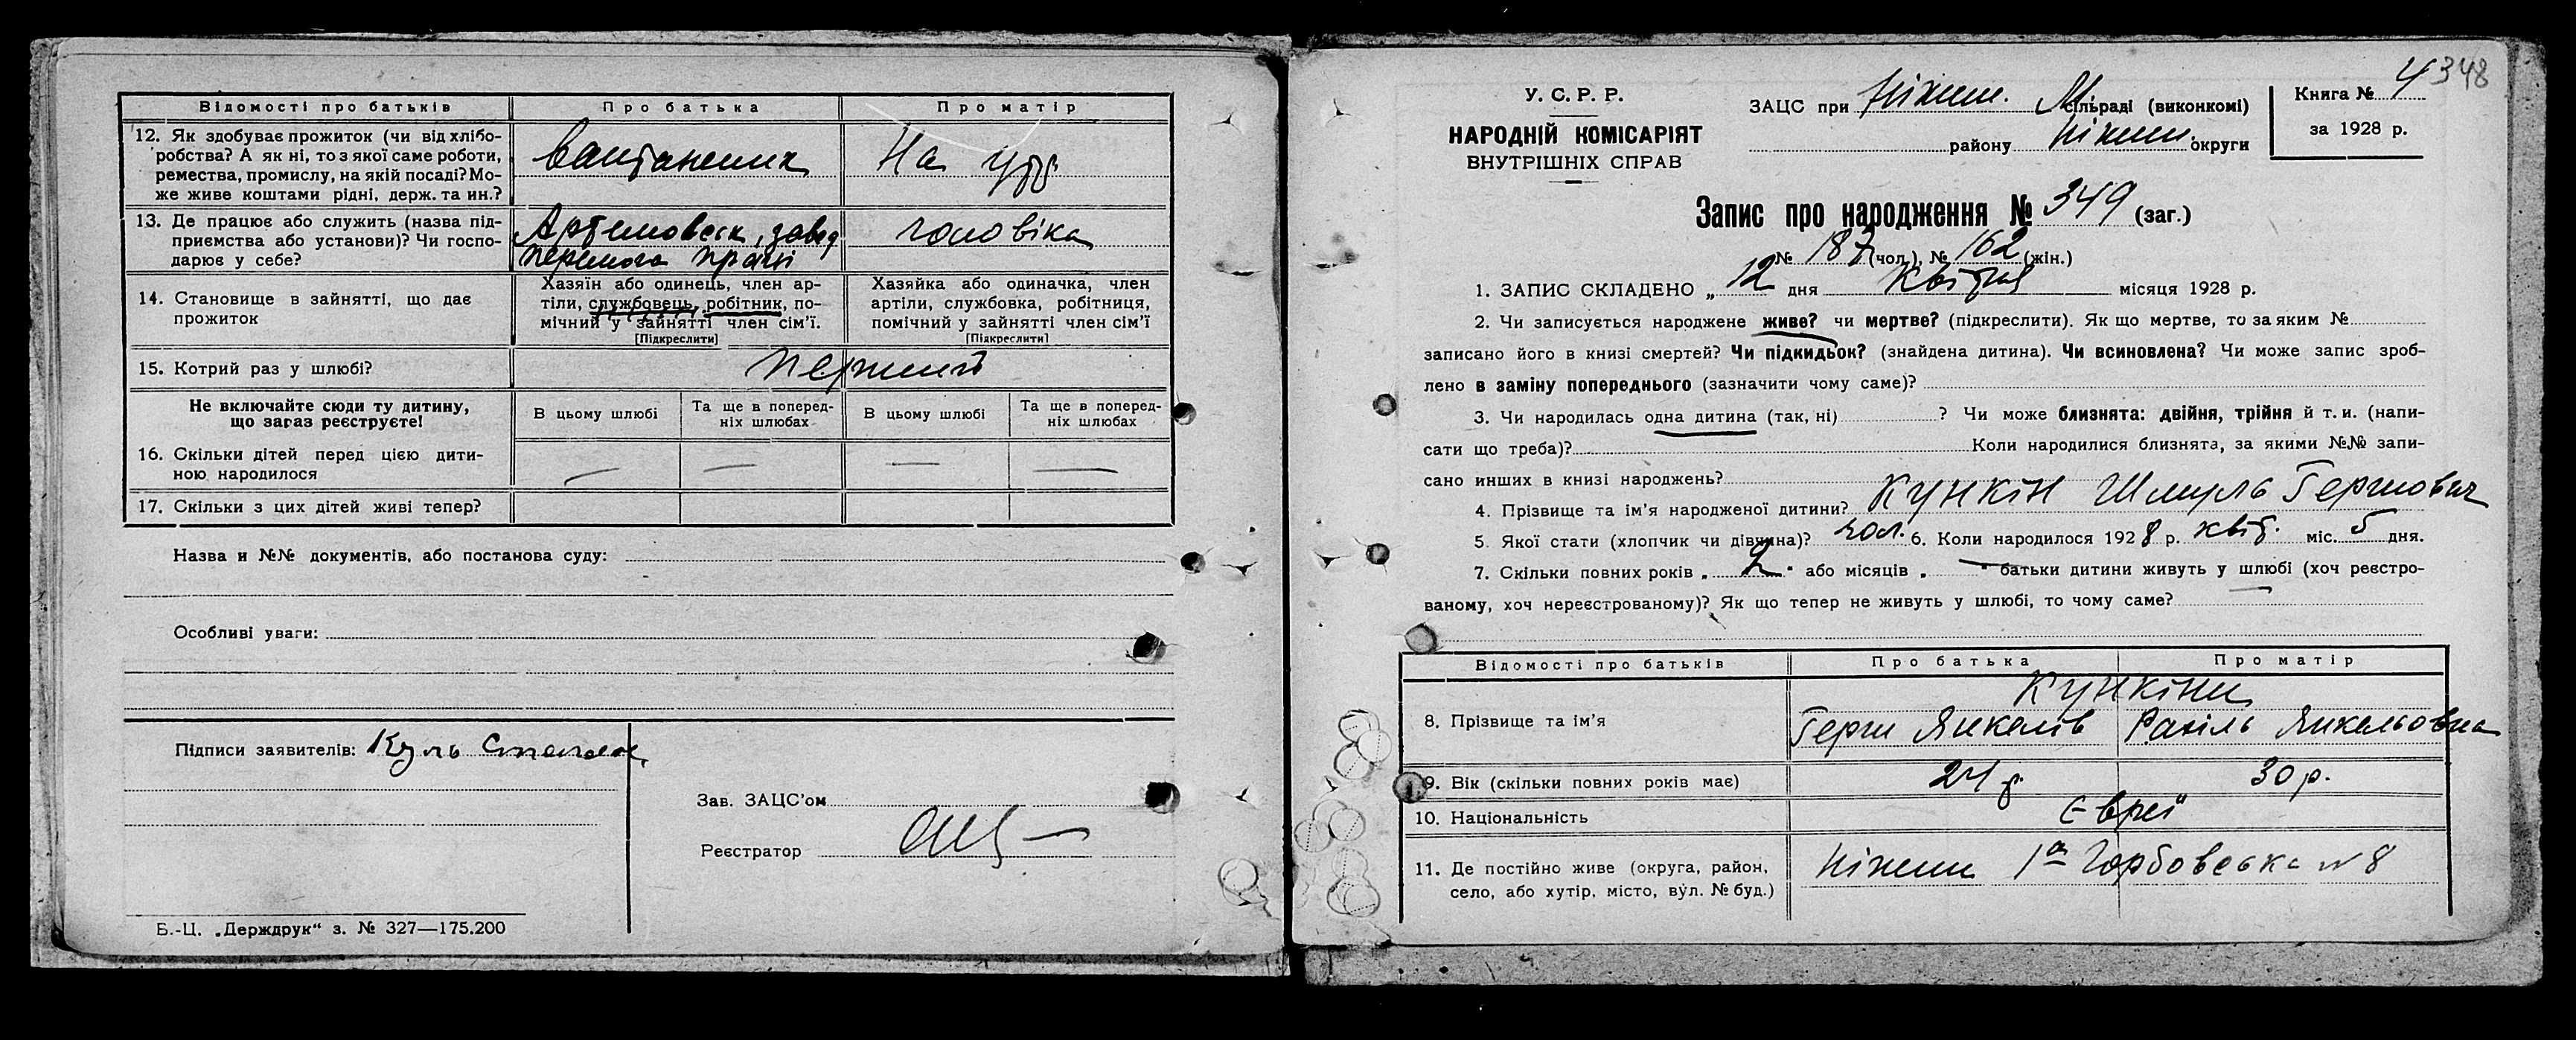 Відомості про батьків Про батька Про матір
12. Як здобуває прожиток (чи від хлібо-
робства? А як ні, то з якої саме роботи,
ремества, промислу, на якій посаді? Мо-
же живе коштами рідні, держ. та ин.?
На утр
13. Де працює або служить (назва під-
приємства або установи)? Чи госпо-
дарює у себе?
Артемовськ, завод
перемога праці
чоловіка
14. Становище в зайнятті, що дає
прожиток
Хазяїн або одинець, член ар-
тілі, службовець, робітник, по-
мічний у зайнятті член сім'ї.
[Підкреслити]
Хазяйка або одиначка, член
артілі, службовка, робітниця,
помічний у зайнятті член сім'ї
[Підкреслити]
15. Котрий раз у шлюбі? перший
Не включайте сюди ту дитину,
що зараз реєструєте!
В цьому шлюбі
Та ще в поперед-
ніх шлюбах
В цьому шлюбі
Та ще в поперед-
ніх шлюбах
16. Скільки дітей перед цією дити-
ною народилося — — — —
17. Скільки з цих дітей живі тепер?
Назва и №№ документів, або постанова суду:
Особливі уваги:
Підписи заявителів:
Зав. ЗАЦС'ом
Реєстратор
Б.-Ц. „Держдрук“ з. № 327—175.200
348
У. С. Р. Р.
НАРОДНІЙ КОМІСАРІЯТ
ВНУТРІШНІХ СПРАВ
ЗАЦС при Ніжин. М сільраді (виконкомі)
району Ніжин. округи
Книга № 4
за 1928 р.
Запис про народження № 349 (заг.)
№ 187 (чол.), № 162 (жін.)
1. ЗАПИС СКЛАДЕНО „ 12 дня Квітня місяця 1928 р.
2. Чи записується народжене живе? чи мертве? (підкреслити). Як що мертве, то за яким №
записано його в книзі смертей? Чи підкидьок? (знайдена дитина). Чи всиновлена? Чи може запис зроб-
лено в заміну попереднього (зазначити чому саме)?
3. Чи народилась одна дитина (так, ні) ? Чи може близнята: двійня, трійня й т. и. (напи-
сати що треба)? Коли народилися близнята, за якими №№ запи-
сано инших в книзі народжень?
4. Прізвище та ім'я народженої дитини? Кункін Шмуль Гершович
5. Якої стати (хлопчик чи дівчина)? чол. 6. Коли народилося 1928 р. квіт. міс. 5 дня.
7. Скільки повних років „ 2 “ або місяців „ — “ батьки дитини живуть у шлюбі (хоч реєстро-
ваному, хоч нереєстрованому)? Як що тепер не живуть у шлюбі, то чому саме?
Відомості про батьків Про батька Про матір
Кункіни
8. Прізвище та ім'я Герш Янкелів Рахіль Янкельовна
9. Вік (скільки повних років має) 24 р. 30 р.
10. Національність Євреї
11. Де постійно живе (округа, район,
село, або хутір, місто, вул. № буд.)
Ніжин 1а Горбовська № 8